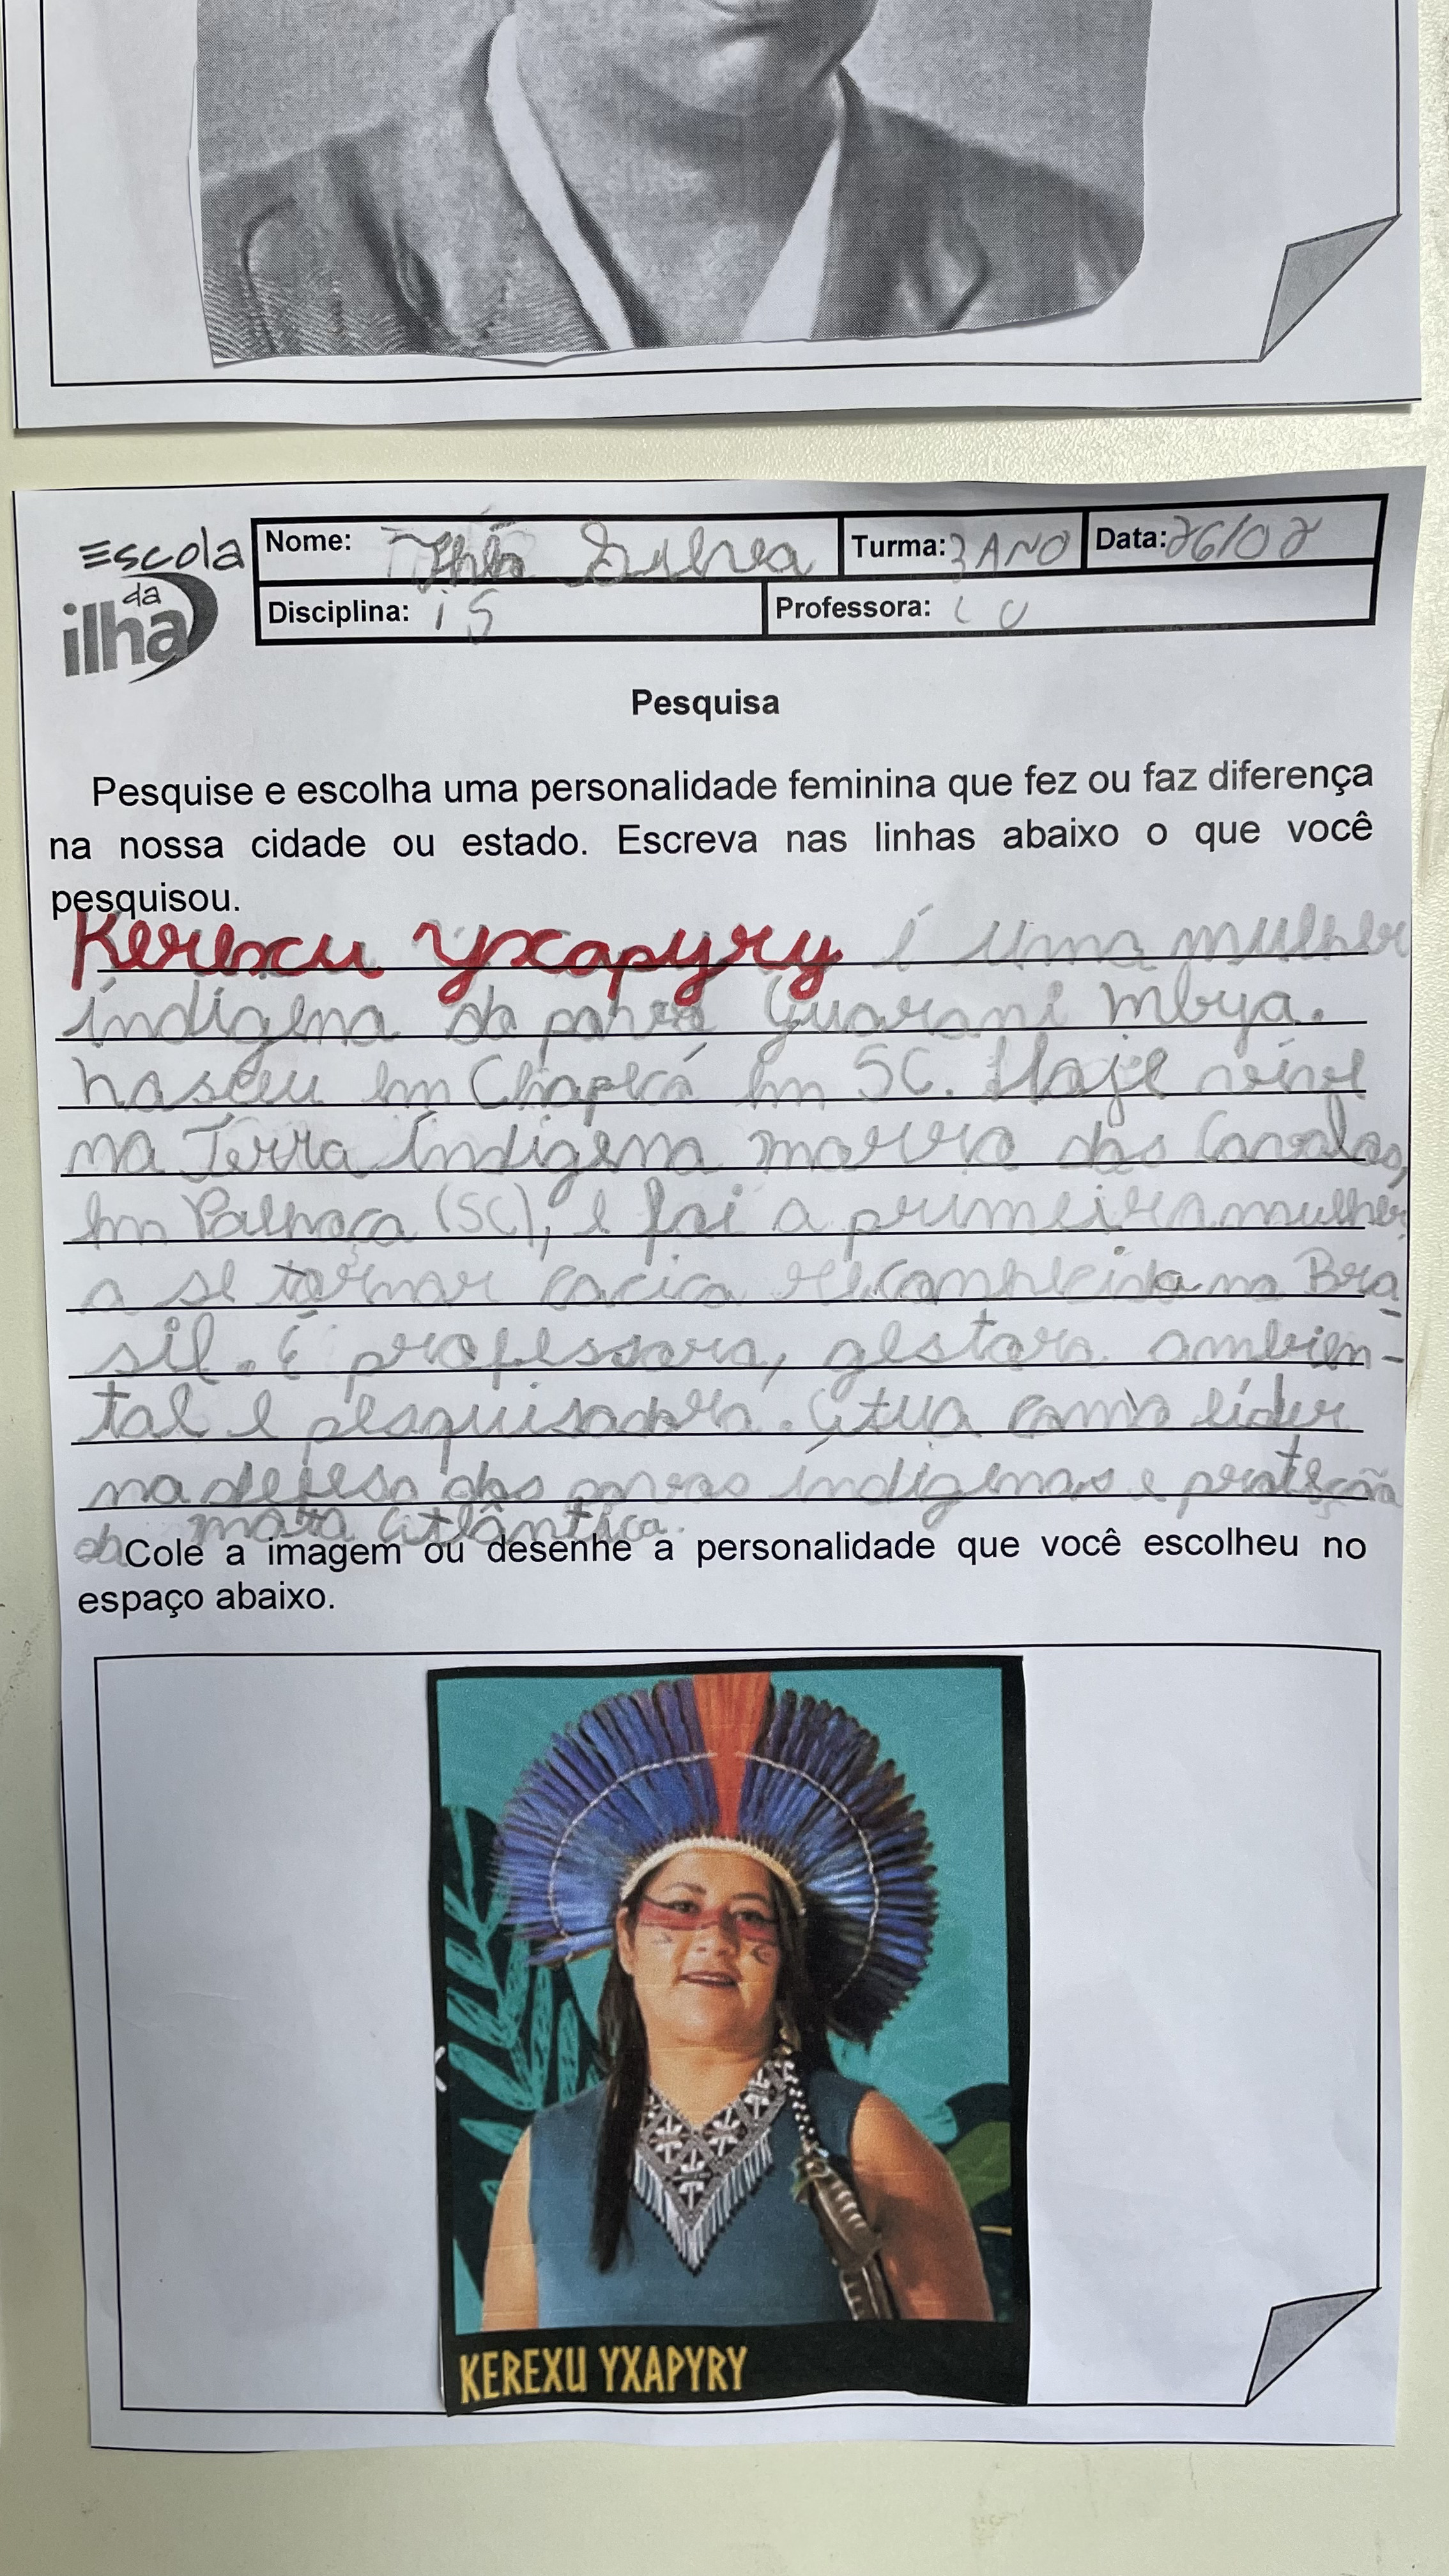 Escola
da
ilha
Nome: Théo Turma: 3 ANO Data: 26/02
Disciplina: is Professora: LU
Pesquisa
Pesquise e escolha uma personalidade feminina que fez ou faz diferença
na nossa cidade ou estado. Escreva nas linhas abaixo o que você
pesquisou.
Kerexu Yxapyry é uma mulher
indígena do Guarani Mbya.
nasceu em Chapecó em SC. Hoje vive
na Terra Indígena morro dos Cavalos,
em Palhoça (SC), e foi a primeira mulher
a se tornar cacica reconhecida no Bra-
sil. É professora, gestora ambien-
tal e pesquisadora. Atua como líder
na defesa dos povos indígenas e proteção
da mata Atlântica.
Cole a imagem ou desenhe a personalidade que você escolheu no
espaço abaixo.
KEREXU YXAPYRY